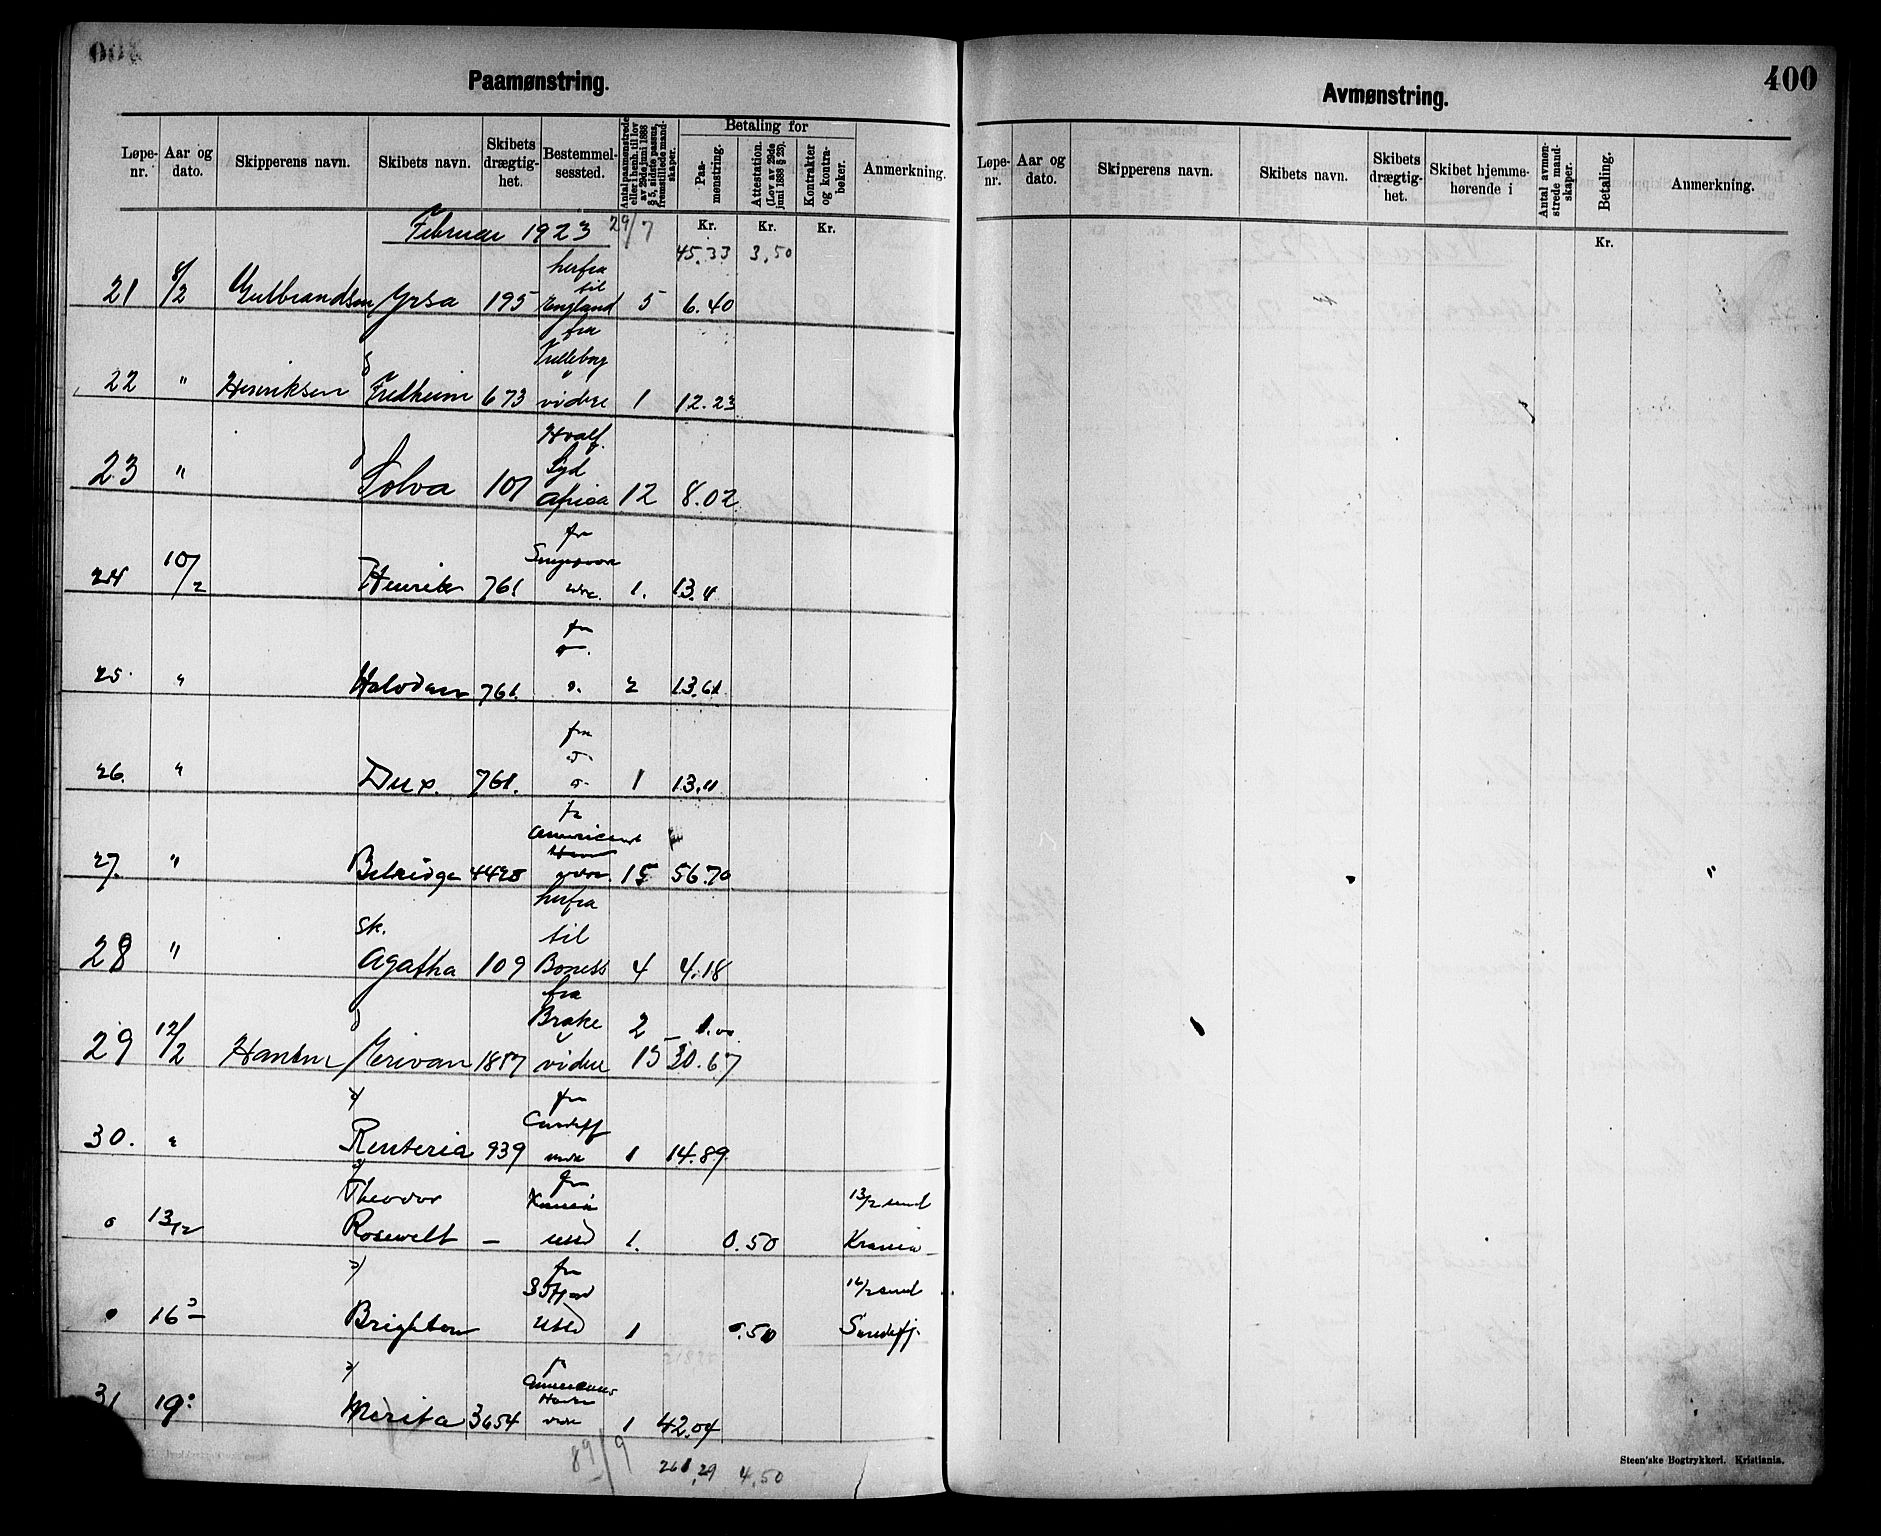 Paamønstring.
Løpe-nr. Aar og dato. Skipperens navn. Skibets navn. Skibets drægtig-het. Bestemmel-sessted. Antal paamønstrede eller i henh. til lov av 29de juni 1888 § 5, sidste passus, fremstillede mand-skaper. Betaling for Paa-mønstring. Attestation. (Lov av 29de juni 1888 § 23). Kontrakter og kontra-bøker. Anmerkning.
Kr. Kr. Kr.
Februar 1923 29/7 45.33 3,50
21 8/2 Gulbrandsen Yrsa 195 herfra til England 5 6.40
22 " Henriksen Fredheim 673 fra videre 1 12.23
23 " Solva 107 Hvalf. Syd Africa 12 8.02
24 10/2 Henrik 761 fra 1. 13.11
25. " Halvdan 761. fra 2 13.61
26. " Dux. 761. fra 1 13.11
27. " Belridge 4428 fra 15 56.70
28 " Sk. Agatha 109 herfra til Boness 4 4.18
29 12/2 Hansen Erivan 1817 fra Brake videre 2 1.00
15 30.67
30. " Renteria 939 fra Cardiff 1 14.89
13/2 Theodor Rosevelt — fra Kr.ania 1. 0.50 13/2 send Krania
16 Brighton fra 1 0.50 16/2 send Sandefj.
31 19 Merita 3654 1 42.04
89/9 261,29 4,50
Avmønstring.
400
Løpe-nr. Aar og dato. Skipperens navn. Skibets navn. Skibets drægtig-het. Skibet hjemme-hørende i Antal avmøn-strede mand-skaper. Betaling. Anmerkning.
Kr.
Steen'ske Bogtrykkeri. Kristiania.